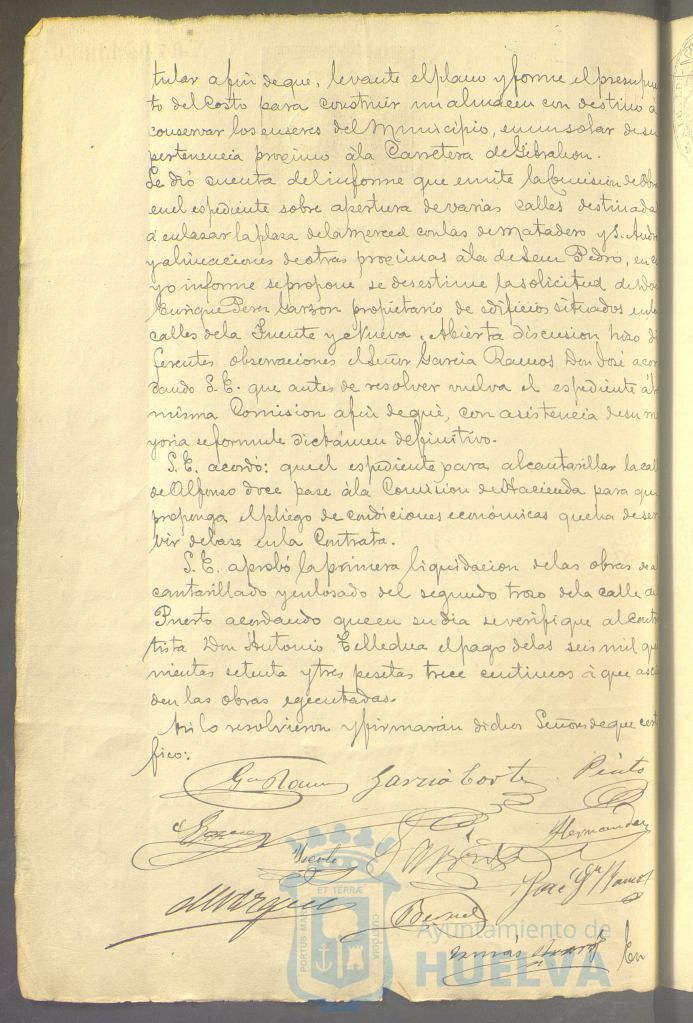 tular a fin de que, levante el plano y forme el presupues
to del costo para construir un almacen con destino a
conservar los enseres del Municipio, en un solar de su
pertenencia proximo á la Carretera de Gibraleon.
Se dió cuenta del informe que emite la Comision de Obr
en el espediente sobre apertura de varias calles destinada
á enlazar la plaza de la Merced con las de Matadero y S. Andr
y alineaciones de otras proximas á la de San Pedro, en cu
yo informe se propone se desestime la solicitud de Don
Enrique Perez Garzon propietario de edificios situados en la
calles de la Fuente y Nueva. Abierta discusion hizo di
ferentes observaciones el Señor Garcia Ramos Don José acor
dando S. E. que antes de resolver vuelva el espediente á la
misma Comision a fin de que, con asistencia de su ma
yoria se formule dictámen definitivo.
S. E. acordó: que el espediente para alcantarillar la calle
de Alfonso doce pase á la Comision de Hacienda para que
proponga el pliego de condiciones económicas que ha de ser
vir de base en la Contrata.
S. E. aprobó la primera liquidacion de las obras de al
cantarillado y enlosado del segundo trozo de la calle de
Puerto acordando que en su dia se verifique al contra
tista Don Antonio el pago de las seis mil qui
nientas setenta y tres pesetas trece centimos á que ascien
den las obras egecutadas.
Asi lo resolvieron y firmarán dichos Señores de que certi
fico:
Ga Ramos Garcia Cortes Pinto
Hernandez
José Ga Ramos
Marquez Bernal
Tomás
En
PORTUS MARIS ET TERRÆ CUSTODIA
Ayuntamiento de
HUELVA